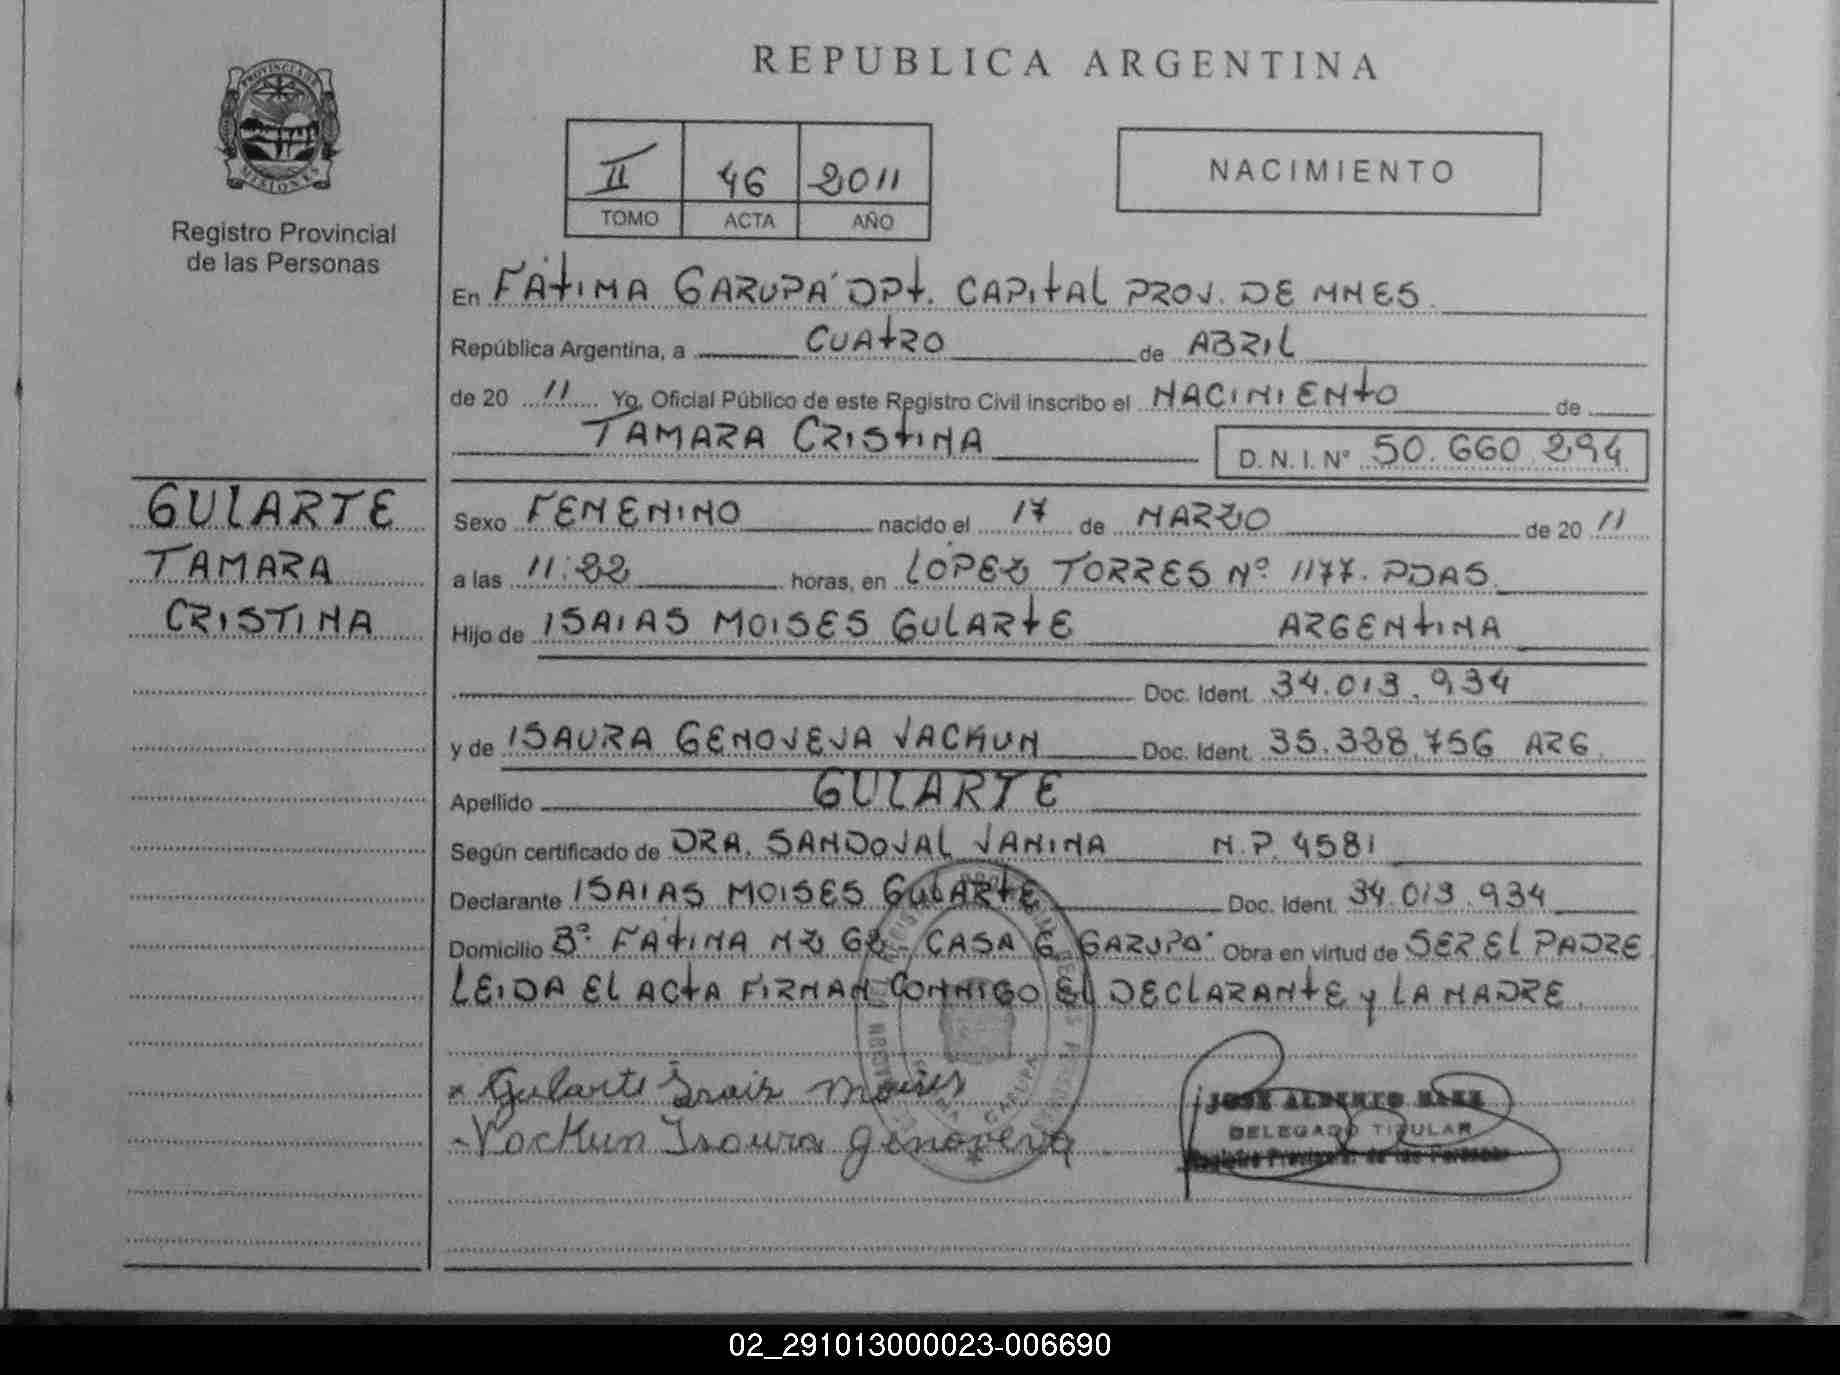 REPUBLICA ARGENTINA
PROVINCIA DE
MISIONES
Registro Provincial
de las Personas
II 46 2011
TOMO ACTA AÑO
NACIMIENTO
En FÁTIMA GARUPÁ DPT. CAPITAL PROV. DE MNES.
República Argentina, a CUATRO de ABRIL
de 20 11 Yo, Oficial Público de este Registro Civil inscribo el NACIMIENTO de
TAMARA CRISTINA D.N.I. Nº 50.660.294
GULARTE
TAMARA
CRISTINA
Sexo FEMENINO nacido el 17 de MARZO de 20 11
a las 11:22 horas, en LÓPEZ TORRES Nº 1177. PDAS.
Hijo de ISAIAS MOISES GULARTE ARGENTINA
Doc. Ident. 34.013.934
y de ISAURA GENOVEVA VACKUN Doc. Ident. 35.328.756 ARG.
Apellido GULARTE
Según certificado de DRA. SANDOVAL VANINA M.P. 4581
Declarante ISAIAS MOISES GULARTE Doc. Ident. 34.013.934
Domicilio Bº FÁTIMA MZ CASA 6 GARUPÁ Obra en virtud de SER EL PADRE
LEIDA EL ACTA FIRMAN CONMIGO EL DECLARANTE y LA MADRE.
Gularte Isaias Moises
Vackun Isaura genoveva
JOSE ALBERTO BAEZ
DELEGADO TITULAR
Registro Provincial de las Personas
GARUPA
02_291013000023-006690